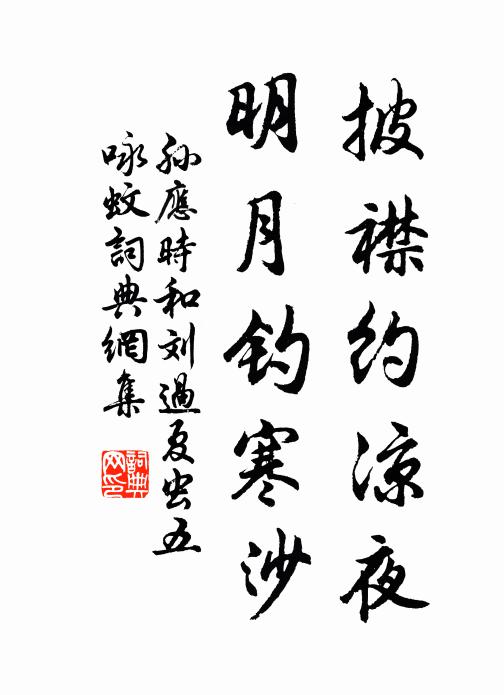 披襟约凉夜
明月钓寒沙
孙應時和刘過夏虫五
咏蚊詞典網集
詞典网印